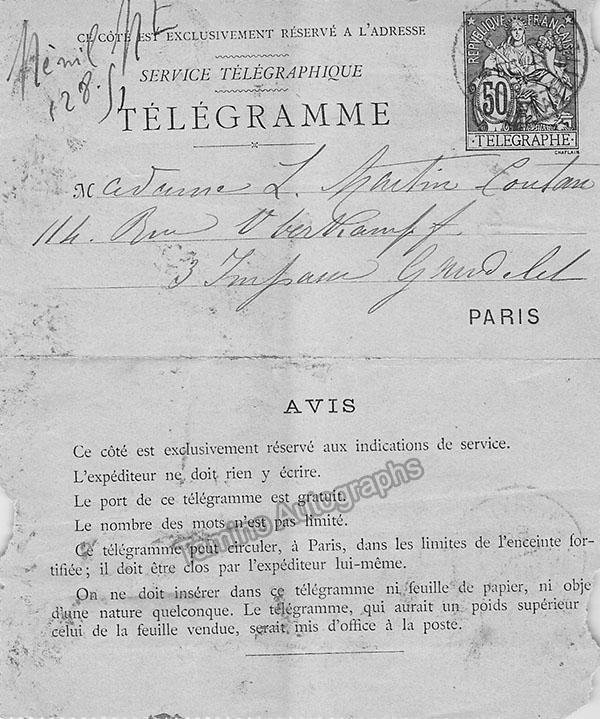 CE CÔTÉ EST EXCLUSIVEMENT RÉSERVÉ A L'ADRESSE
Ménil Mt
128.
SERVICE TÉLÉGRAPHIQUE
TÉLÉGRAMME
REPUBLIQUE FRANÇAISE
50
TELEGRAPHE
CHAPLAIN
Madame L. Martin Coutan
114. Rue Oberkampf.
3 Impasse Gaudelet
PARIS
AVIS
Ce côté est exclusivement réservé aux indications de service.
L'expéditeur ne doit rien y écrire.
Le port de ce télégramme est gratuit.
Le nombre des mots n'est pas limité.
Ce télégramme peut circuler, à Paris, dans les limites de l'enceinte for-
tifiée; il doit être clos par l'expéditeur lui-même.
On ne doit insérer dans ce télégramme ni feuille de papier, ni obje
d'une nature quelconque. Le télégramme, qui aurait un poids supérieur
celui de la feuille vendue, serait mis d'office à la poste.
Tamino Autographs